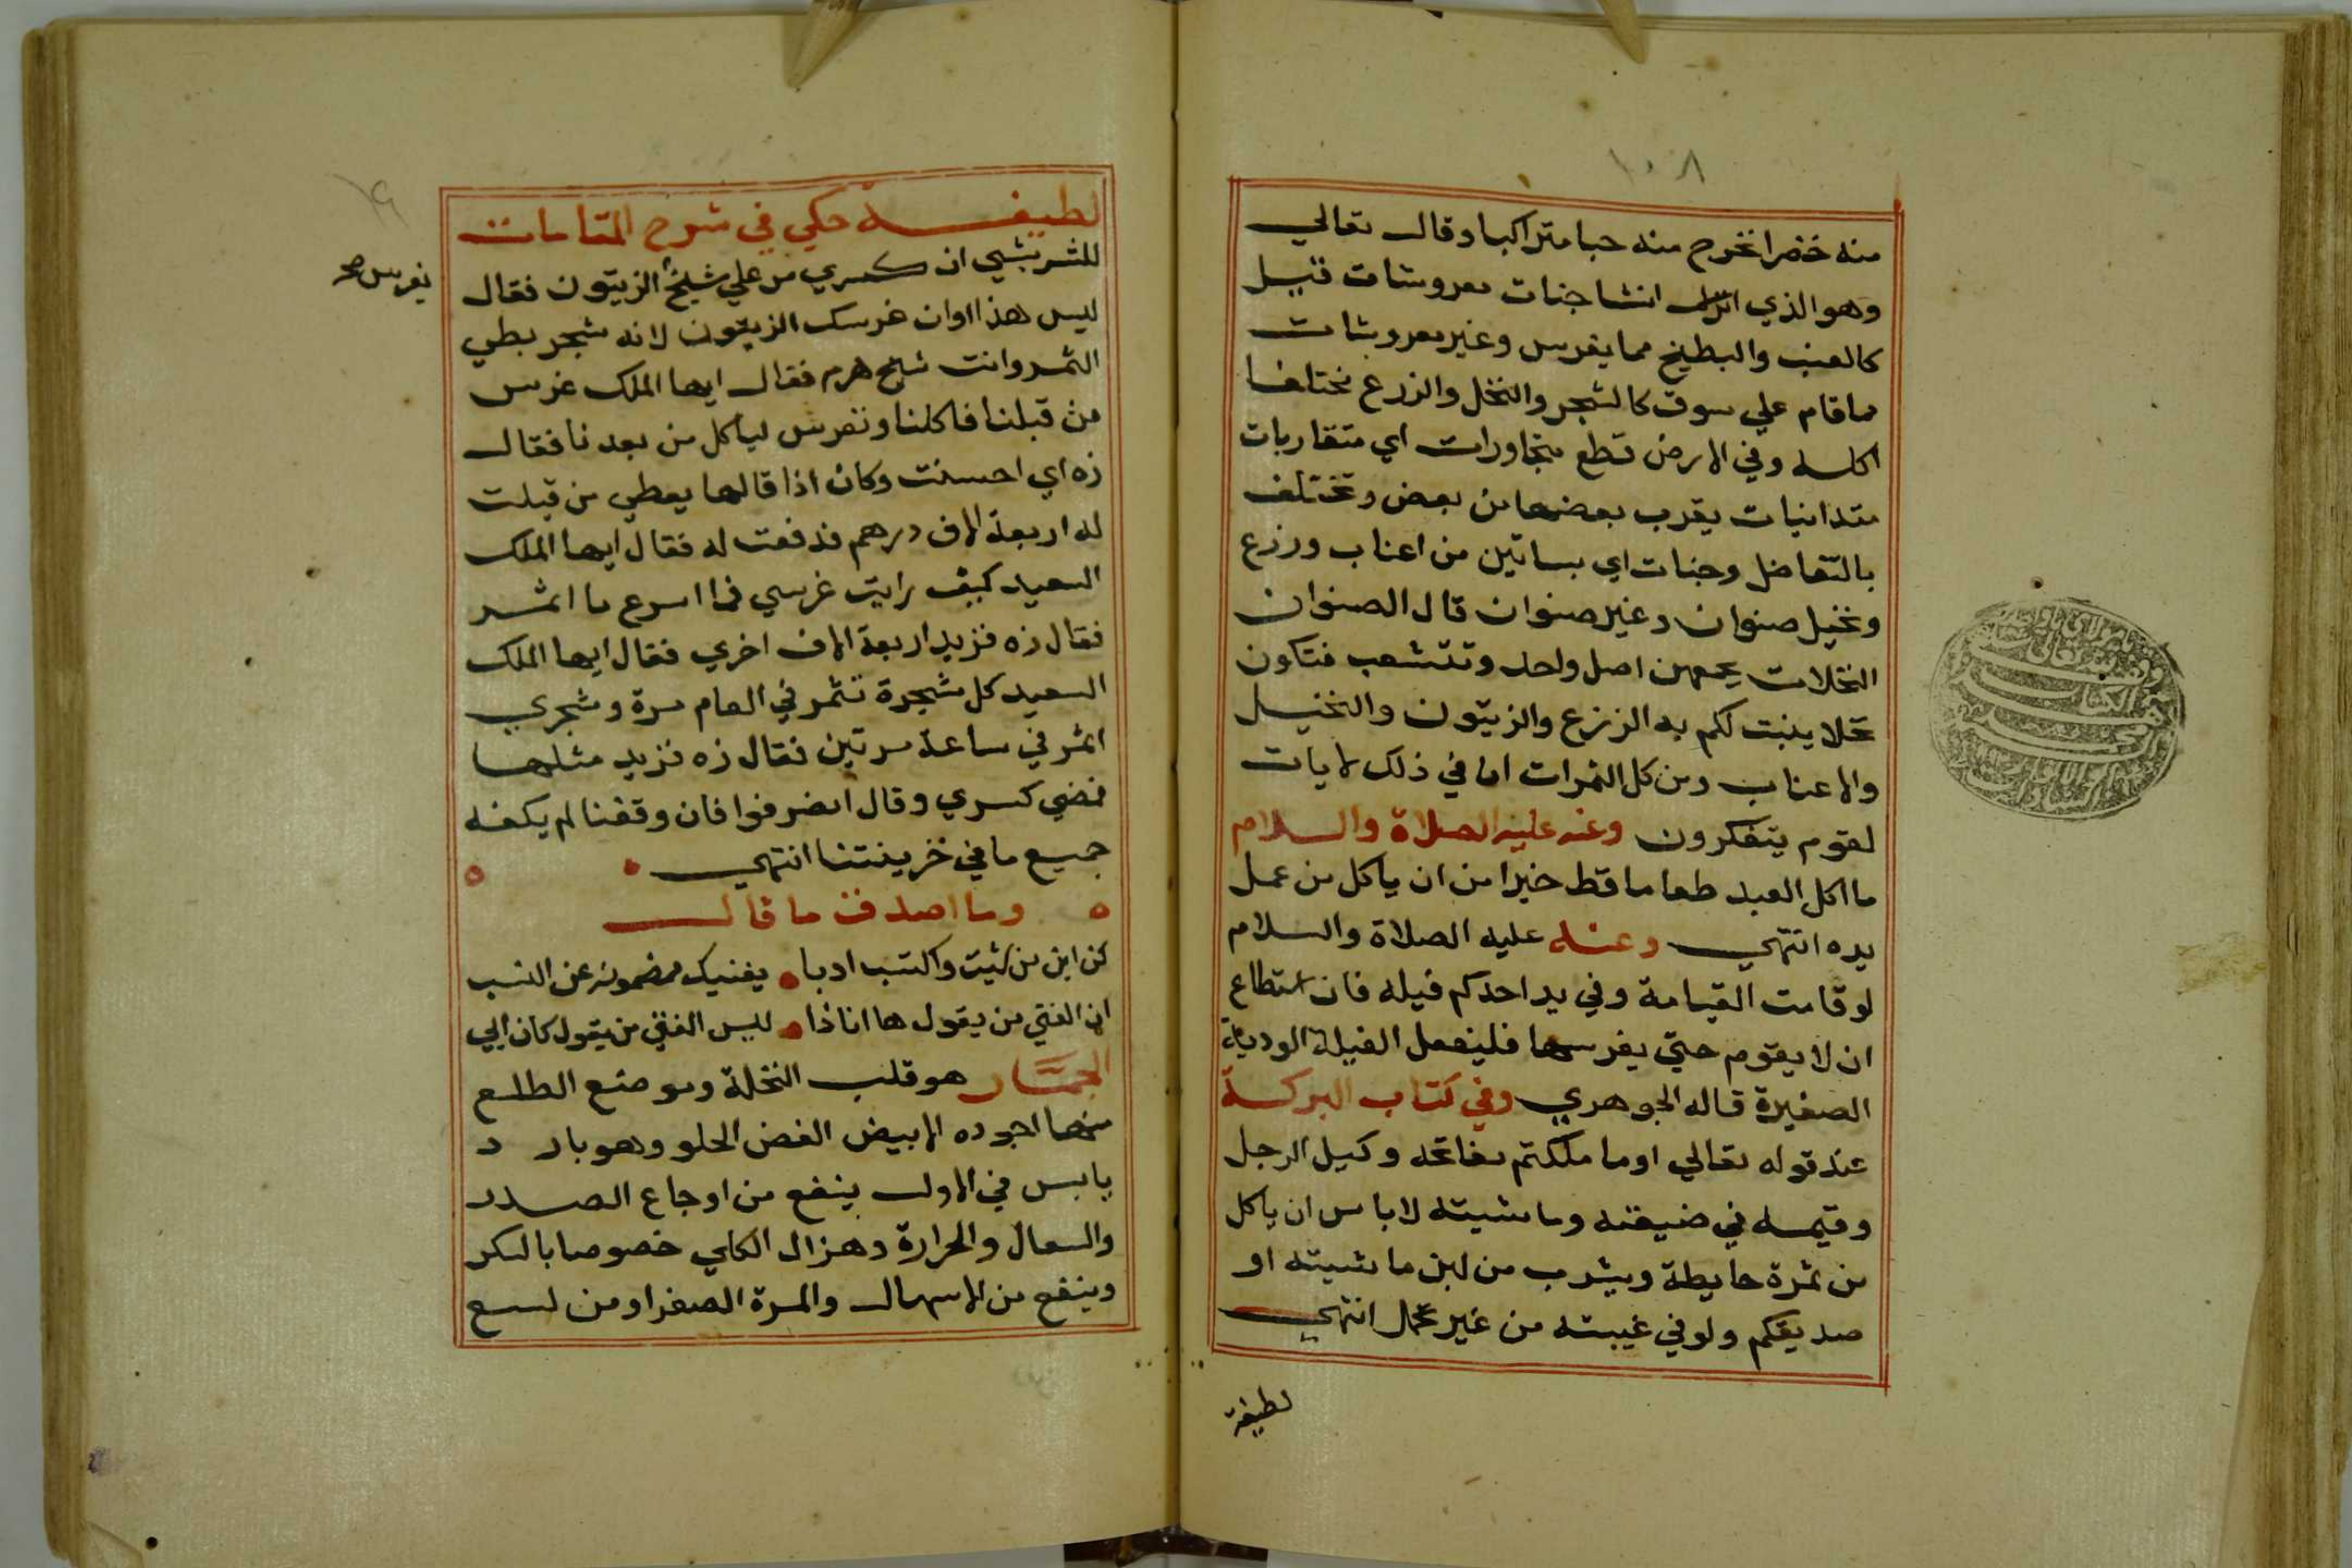 ١٠٨
منه خضرا نخرج منه حبا متراكبا وقال تعالي
وهو الذي انشا جنات معروشات قيل
كالعنب والبطيخ مما يغرس وغير معروشات
ما قام علي سوق كالشجر والنخل والزرع مختلفا
اكله وفي الارض قطع متجاورات اي متقاربات
متدانيات يقرب بعضها من بعض وتختلف
بالتفاضل وجنات اي بساتين من اعناب وزرع
ونخيل صنوان وغير صنوان قال الصنوان
النخلات يجمعهن اصل واحد وتتشعب فتكون
نخلا ينبت لكم به الزرع والزيتون والنخيل
والاعناب ومن كل الثمرات ان في ذلك لايات
لقوم يتفكرون وعنه عليه الصلاة والسلام
ما اكل العبد طعاما قط خيرا من ان ياكل من عمل
يده انتهي وعنه عليه الصلاة والسلام
لو قامت القيامة وفي يد احدكم فيله فان استطاع
ان لا يقوم حتي يغرسها فليفعل الفيلة الودية
الصغيرة قاله الجوهري وفي كتاب البركة
عند قوله تعالي او ما ملكتم مفاتحه وكيل الرجل
وقيمه في ضيعته وماشيته لا باس ان ياكل
من ثمرة حايطة ويشرب من لبن ماشيته او
صديقكم ولو في غيبته من غير تحمل انتهي
لطيفة
لطيفه حكي في شرح المقامات
للشريشي ان كسري مر علي شيخ الزيتون فقال
يغرس صح
ليس هذا اوان غرسك الزيتون لانه شجر بطي
الثمر وانت شيخ هرم فقال ايها الملك غرس
من قبلنا فاكلنا ونغرس لياكل من بعدنا فقال
زه اي احسنت وكان اذا قالها يعطي من قيلت
له اربعة الاف درهم فدفعت له فقال ايها الملك
السعيد كيف رايت غرسي فما اسرع ما اثمر
فقال زه فزيد اربعة الاف اخري فقال ايها الملك
السعيد كل شجرة تثمر في العام مرة وشجري
اثمر في ساعة مرتين فقال زه فزيد مثلها
فمضي كسري وقال انصرفوا فان وقفنا لم يكفه
جميع ما في خزينتنا انتهي
وما اصدق ما قال
كن ابن من شيت واكتسب ادبا يغنيك مضمونه عن النسب
ان الفتي من يقول ها انا ذا ليس الفتي من يقول كان ابي
الجمار هو قلب النخلة وموضع الطلع
منها اجوده الابيض الغض الحلو وهو بارد
يابس في الاول ينفع من اوجاع الصدر
والسعال والحرارة وهزال الكلي خصوصا بالسكر
وينفع من الاسهال والمرة الصفرا ومن لسع